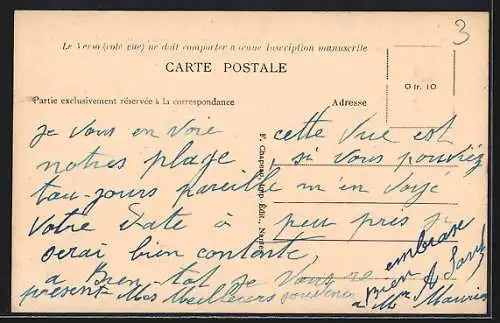 3
Le Verso (coté vue) ne doit comporter aucune Inscription manuscrite
CARTE POSTALE
0 fr. 10
Partie exclusivement réservée à la correspondance
Adresse
F. Chapeau, Imp. Édit., Nantes
je vous en voie cette vue est
notres plage, si vous pouviez
tou-jours pareille m'en voye
votre date à peu pres je
serai bien contante,
a Bien-tot je vous embrase
présent Mes Meilleurs souvenir
a Bien
Mr Maurice